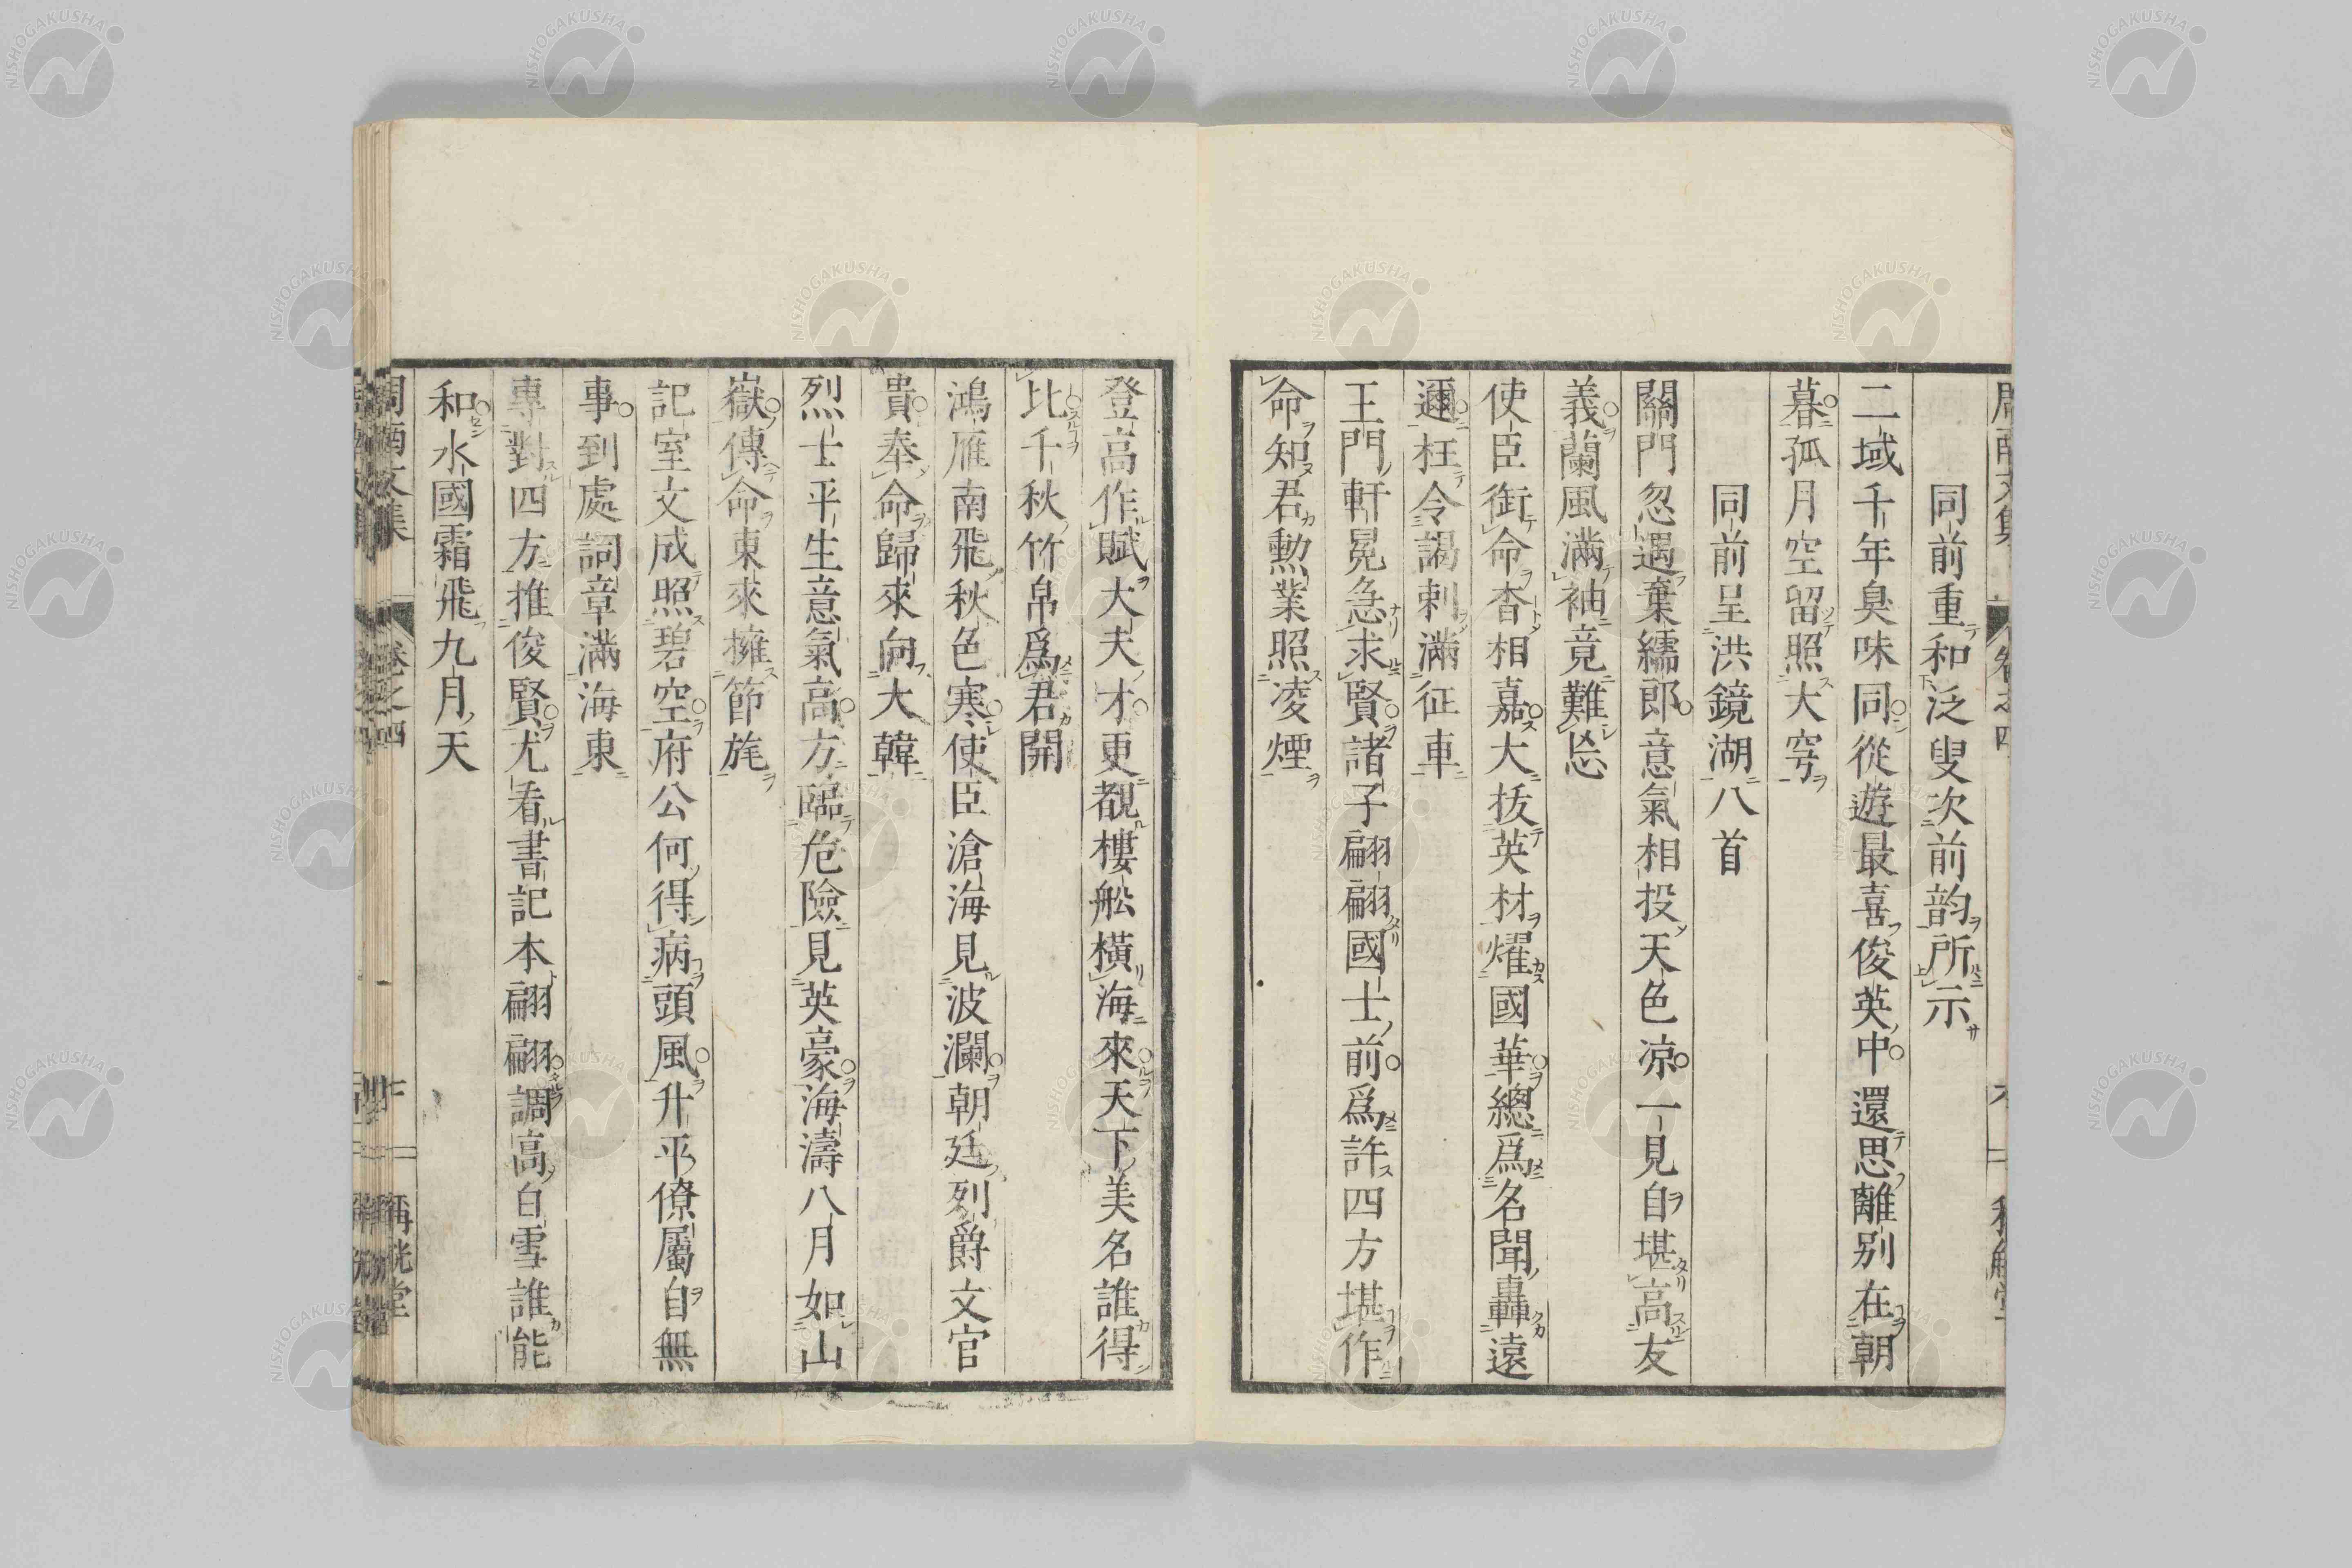 同前重和泛叟次前韵所示
二域千年臭味同從遊最喜俊英中還思離別在朝
暮孤月空留照大穹
同前呈洪鏡湖八首
關門忽遇棄繻郎意氣相投天色凉一見自堪高友
義蘭風滿袖竟難忘
使臣銜命杳相嘉大拔英材燿國華總爲名聞轟遠
邇枉令謁刺滿征車
王門軒冕急求賢諸子翩翩國士前爲許四方堪作
命知君勲業照凌煙
登高作賦大夫才更覩樓船橫海來天下美名誰得
比千秋竹帛爲君開
鴻雁南飛秋色寒使臣滄海見波瀾朝廷列爵文官
貴奉命歸來向大韓
烈士平生意氣高方臨危險見英豪海濤八月如山
嶽傳命東來擁節旄
記室文成照碧空府公何得病頭風升平僚屬自無
事到處詞章滿海東
專對四方推俊賢尤看書記本翩翩調高白雪誰能
和水國霜飛九月天
周南文集 卷之四
NISHOGAKUSHA